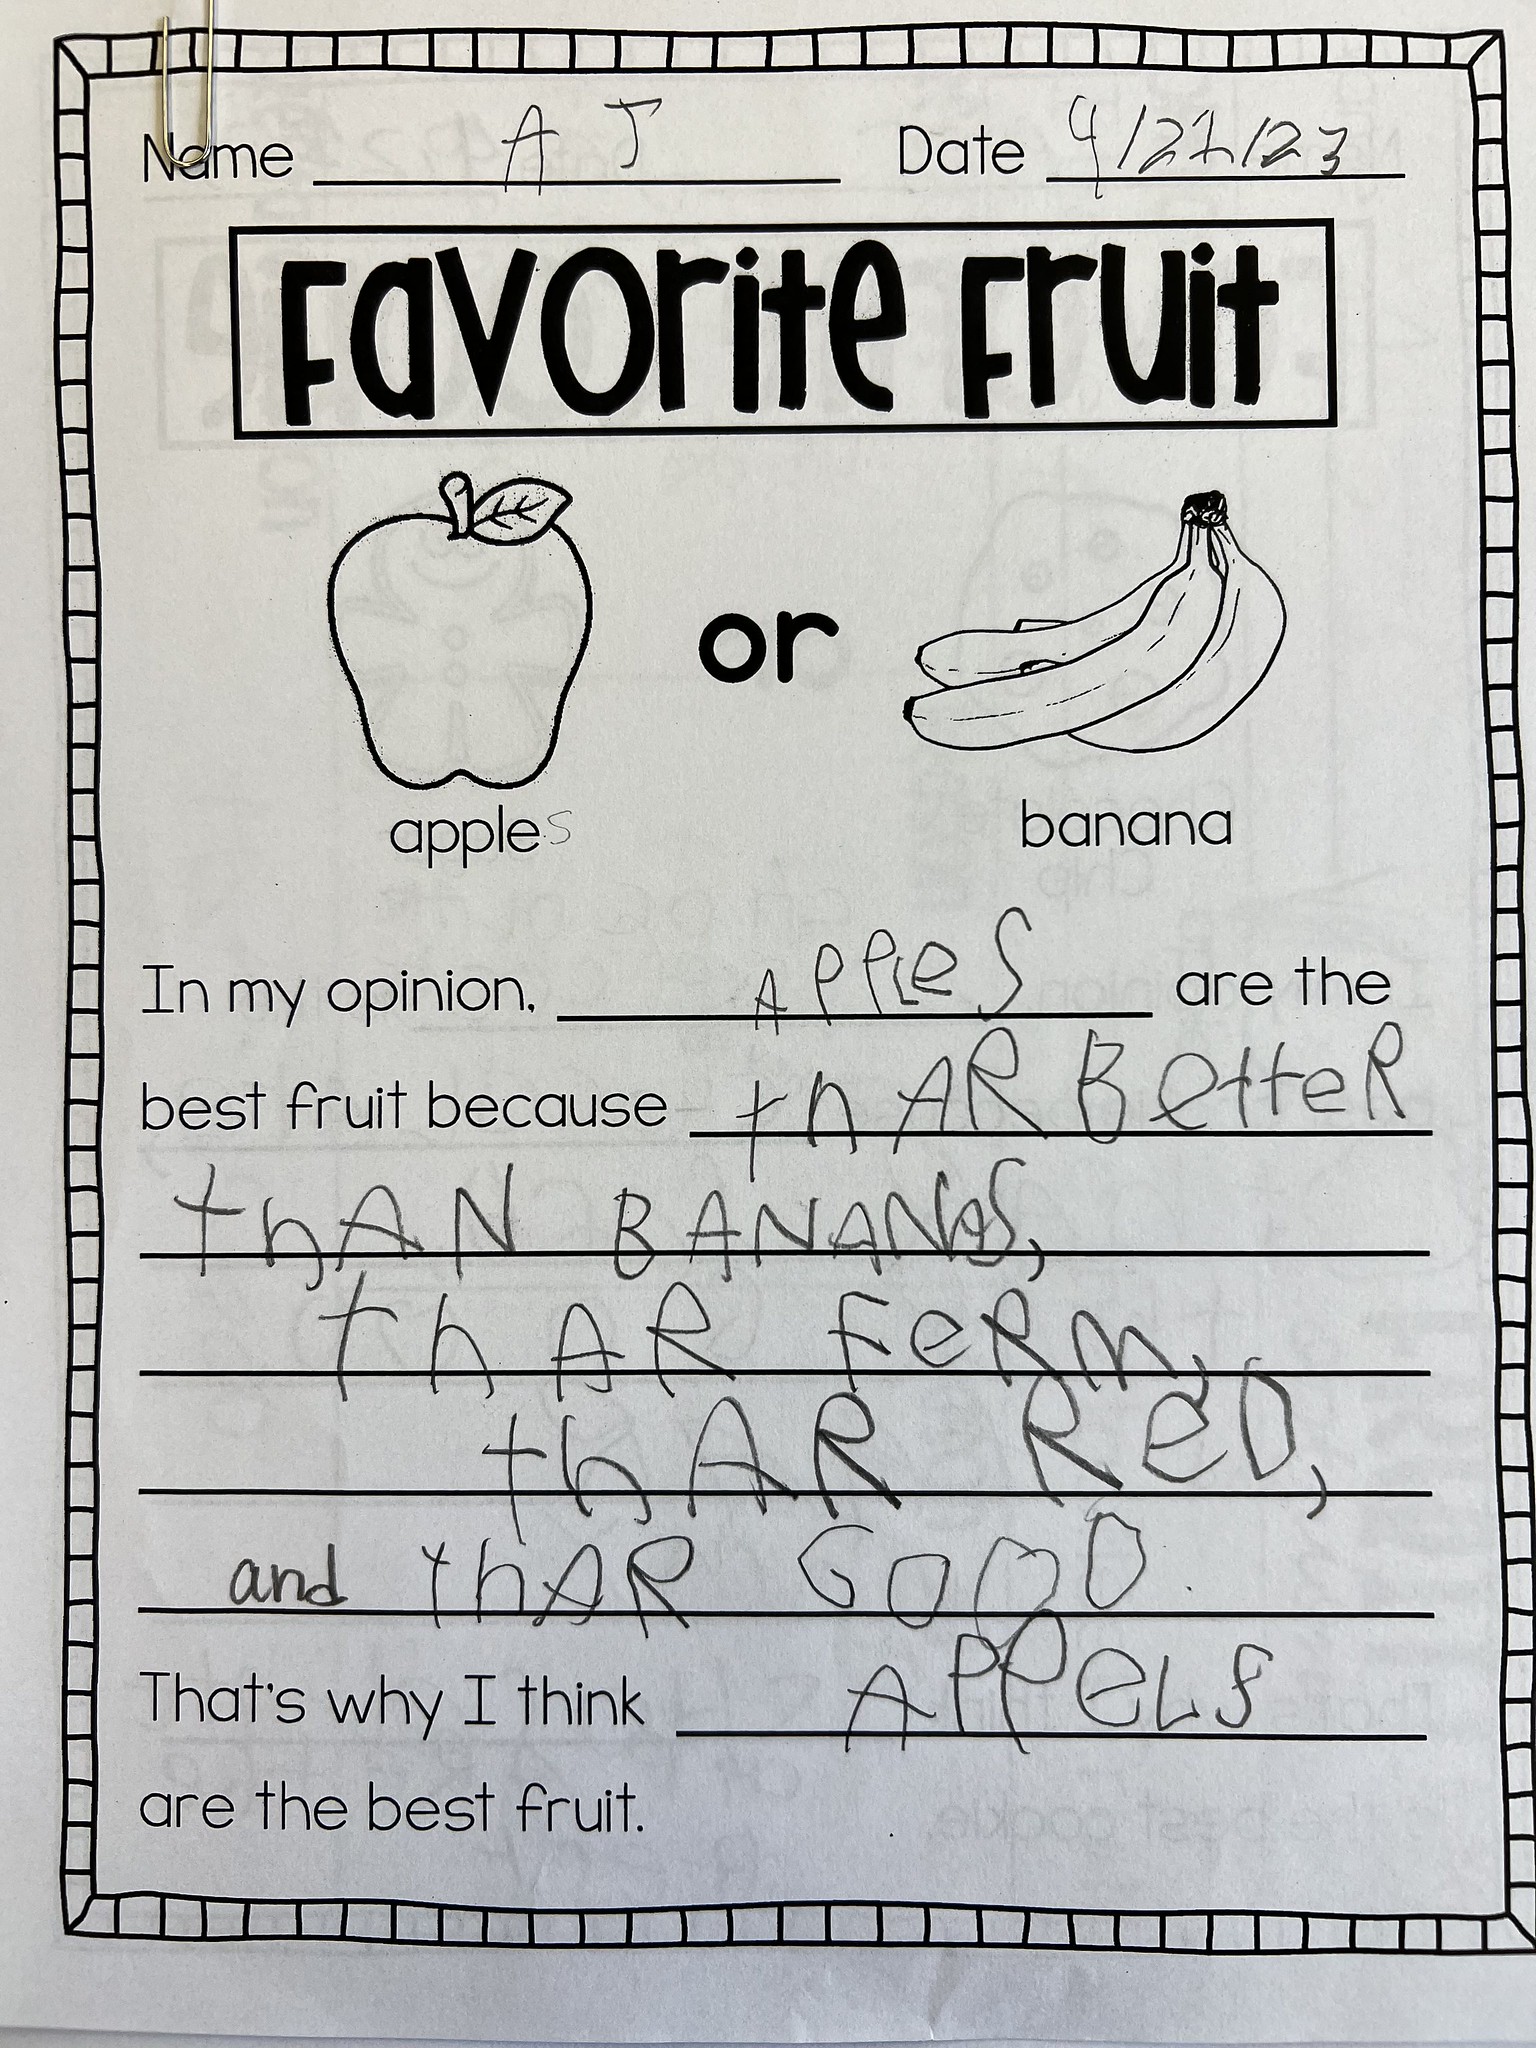 Name A J Date 4/21/23
Favorite Fruit
or
apples banana
In my opinion, APPLeS are the
best fruit because thAR BetteR
thAN BANANAS,
thAR FeRm,
thAR ReD,
and thAR GOOD.
That's why I think APPeLS
are the best fruit.